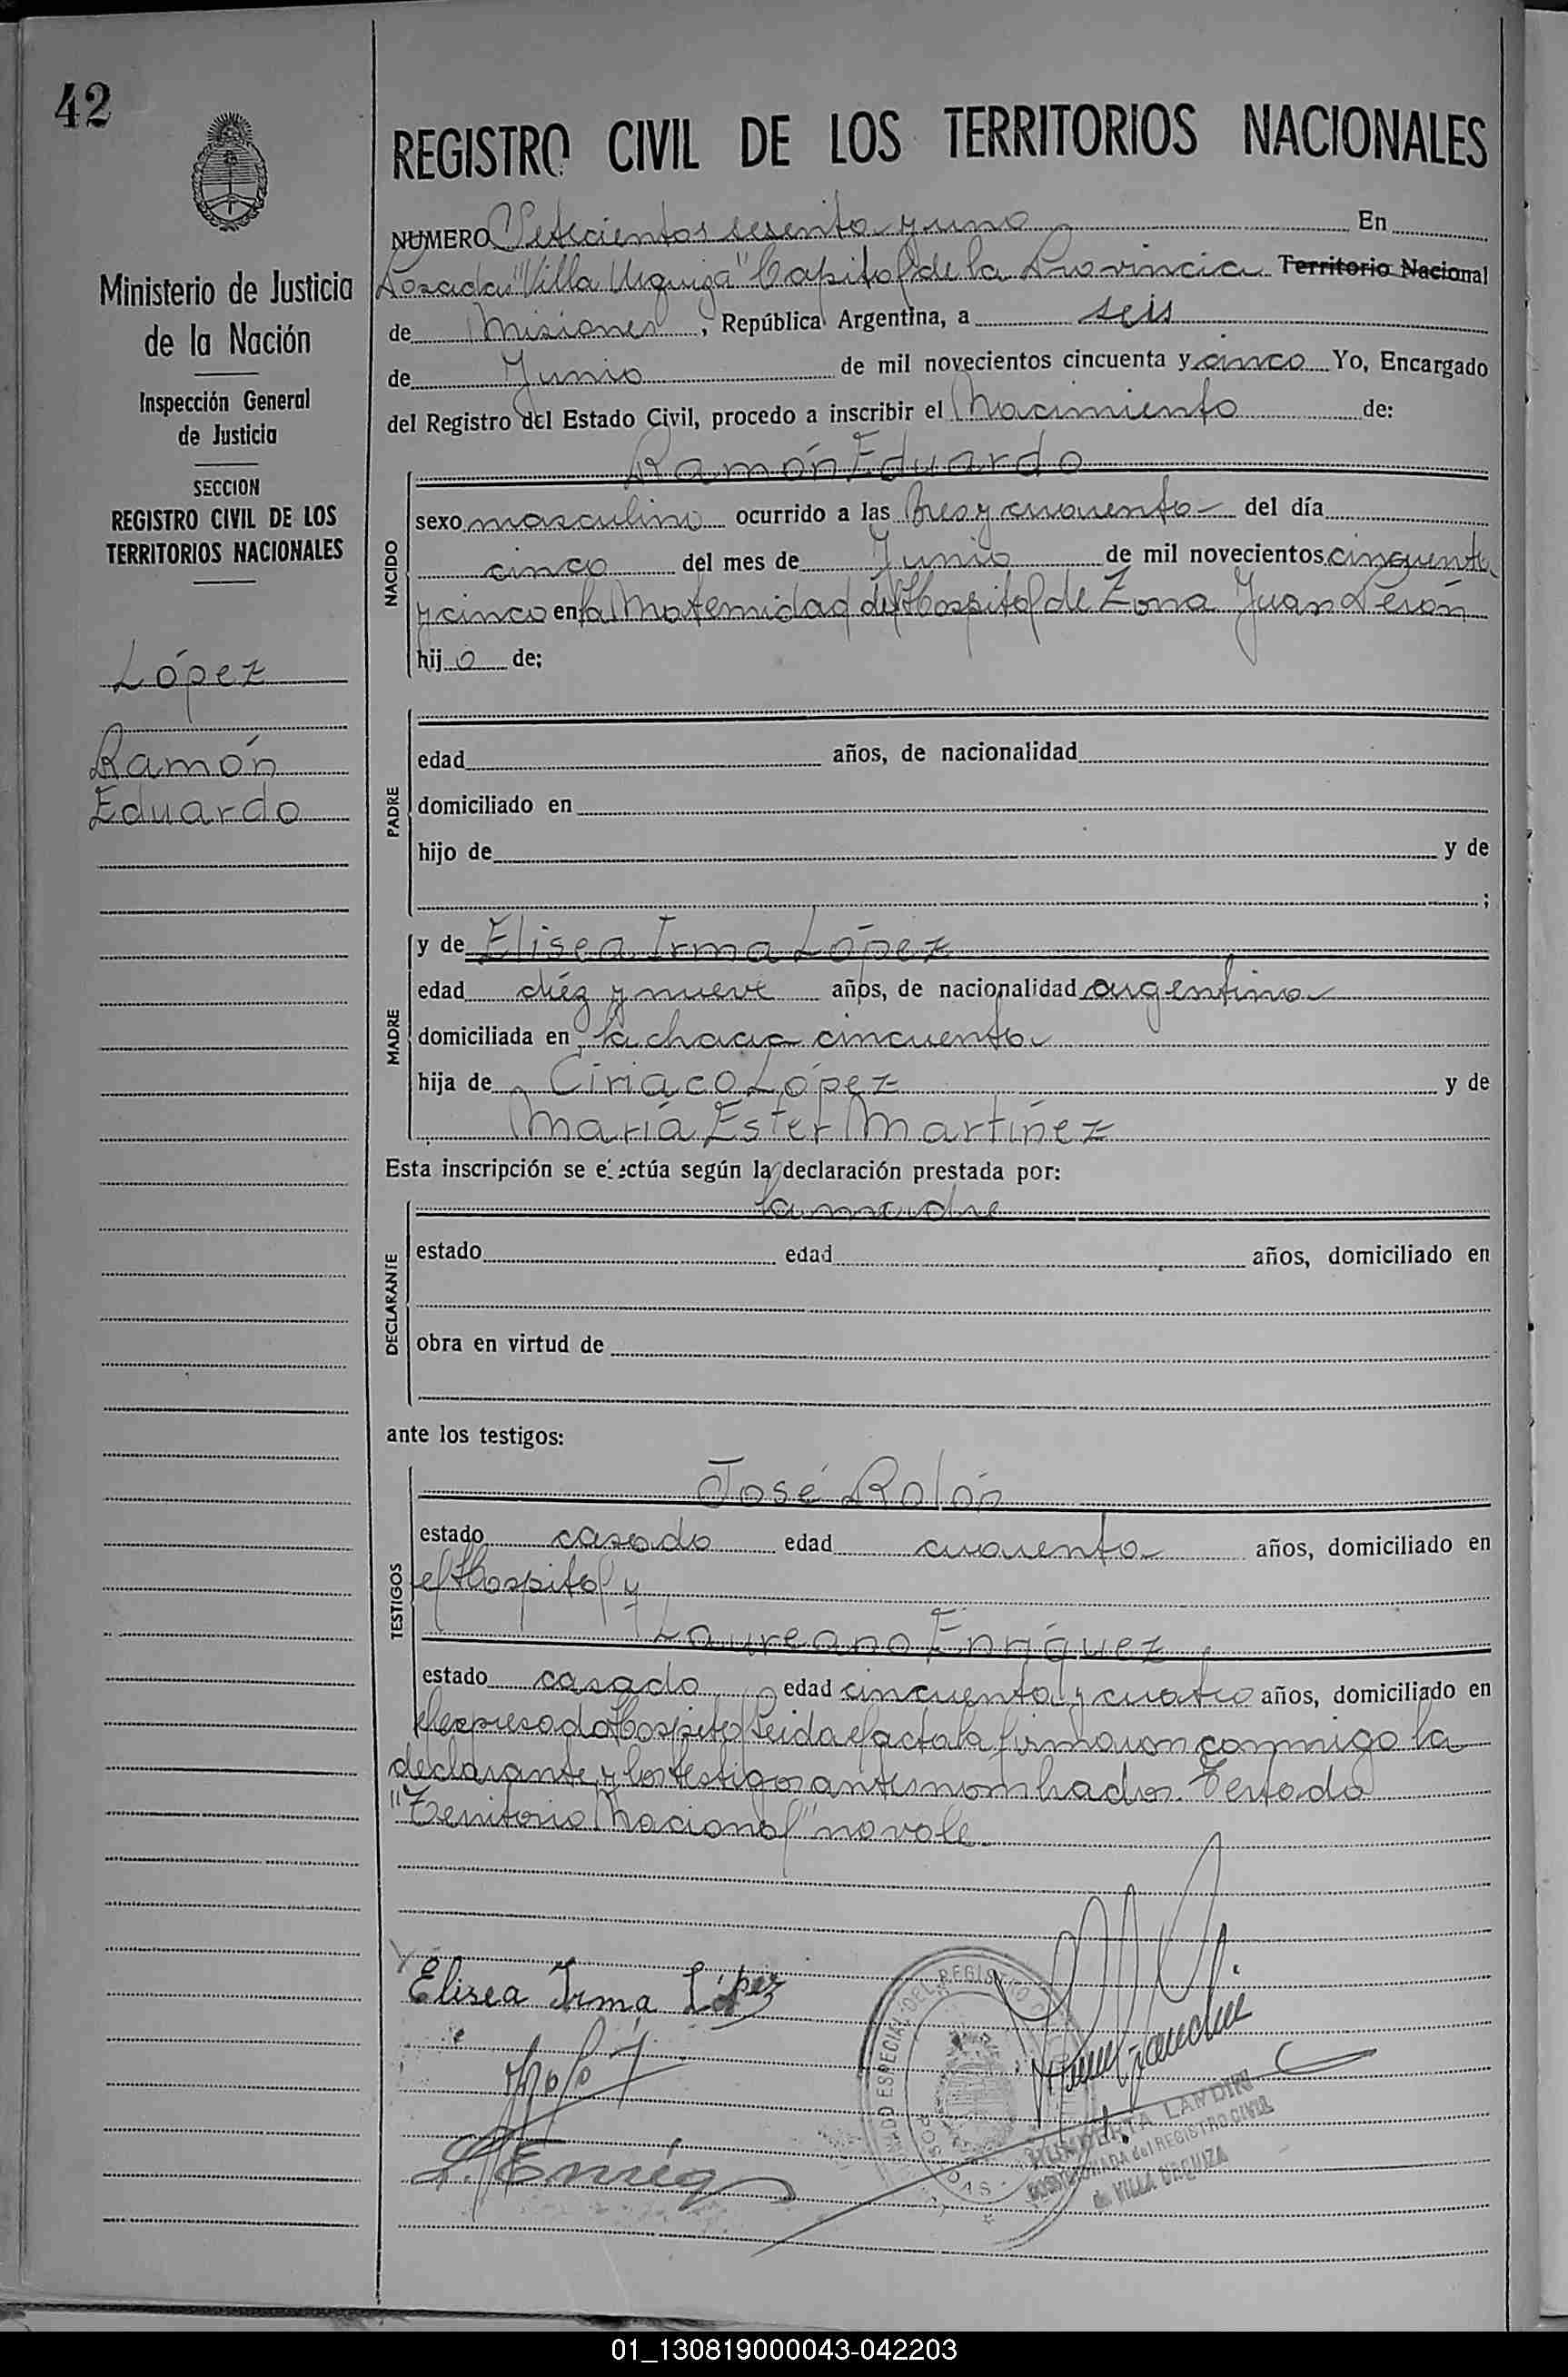 42
Ministerio de Justicia
de la Nación
Inspección General
de Justicia
SECCION
REGISTRO CIVIL DE LOS
TERRITORIOS NACIONALES
López
Ramón
Eduardo
REGISTRO CIVIL DE LOS TERRITORIOS NACIONALES
NUMERO Setecientos sesenta y uno En
Posadas "Villa Urquiza" Capital de la Provincia Territorio Nacional
de Misiones, República Argentina, a seis
de Junio de mil novecientos cincuenta y cinco Yo, Encargado
del Registro del Estado Civil, procedo a inscribir el Nacimiento de:
NACIDO
Ramón Eduardo
sexo masculino ocurrido a las tres y cuarenta del día
cinco del mes de Junio de mil novecientos cincuenta
y cinco en la Maternidad del Hospital de Zona Juan Perón
hijo de;
PADRE
edad años, de nacionalidad
domiciliado en
hijo de y de
;
MADRE
y de Elisea Irma López
edad diéz y nueve años, de nacionalidad argentina
domiciliada en la chacra cincuenta
hija de Ciriaco López y de
María Ester Martínez
Esta inscripción se efectúa según la declaración prestada por:
DECLARANTE
la madre
estado edad años, domiciliado en
obra en virtud de
ante los testigos:
TESTIGOS
José Rolón
estado casado edad cuarenta años, domiciliado en
el Hospital y
Laureano Enríquez
estado casado edad cincuenta y cuatro años, domiciliado en
el expresado Hospital Leída el acta la firmaron conmigo la
declarante y los testigos antes nombrados. Testado
"Territorio Nacional" no vale.
Elisea Irma López
L. Enríq
DEL REGISTRO
LANDINI
del REGISTRO CIVIL
de VILLA URQUIZA
01_130819000043-042203